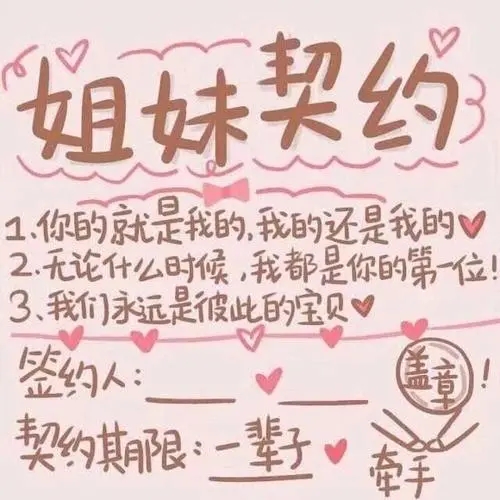 姐妹契约
1.你的就是我的,我的还是我的
2.无论什么时候,我都是你的第一位!
3.我们永远是彼此的宝贝
签约人:____ ____
盖章!
契约期限:一辈子
牵手